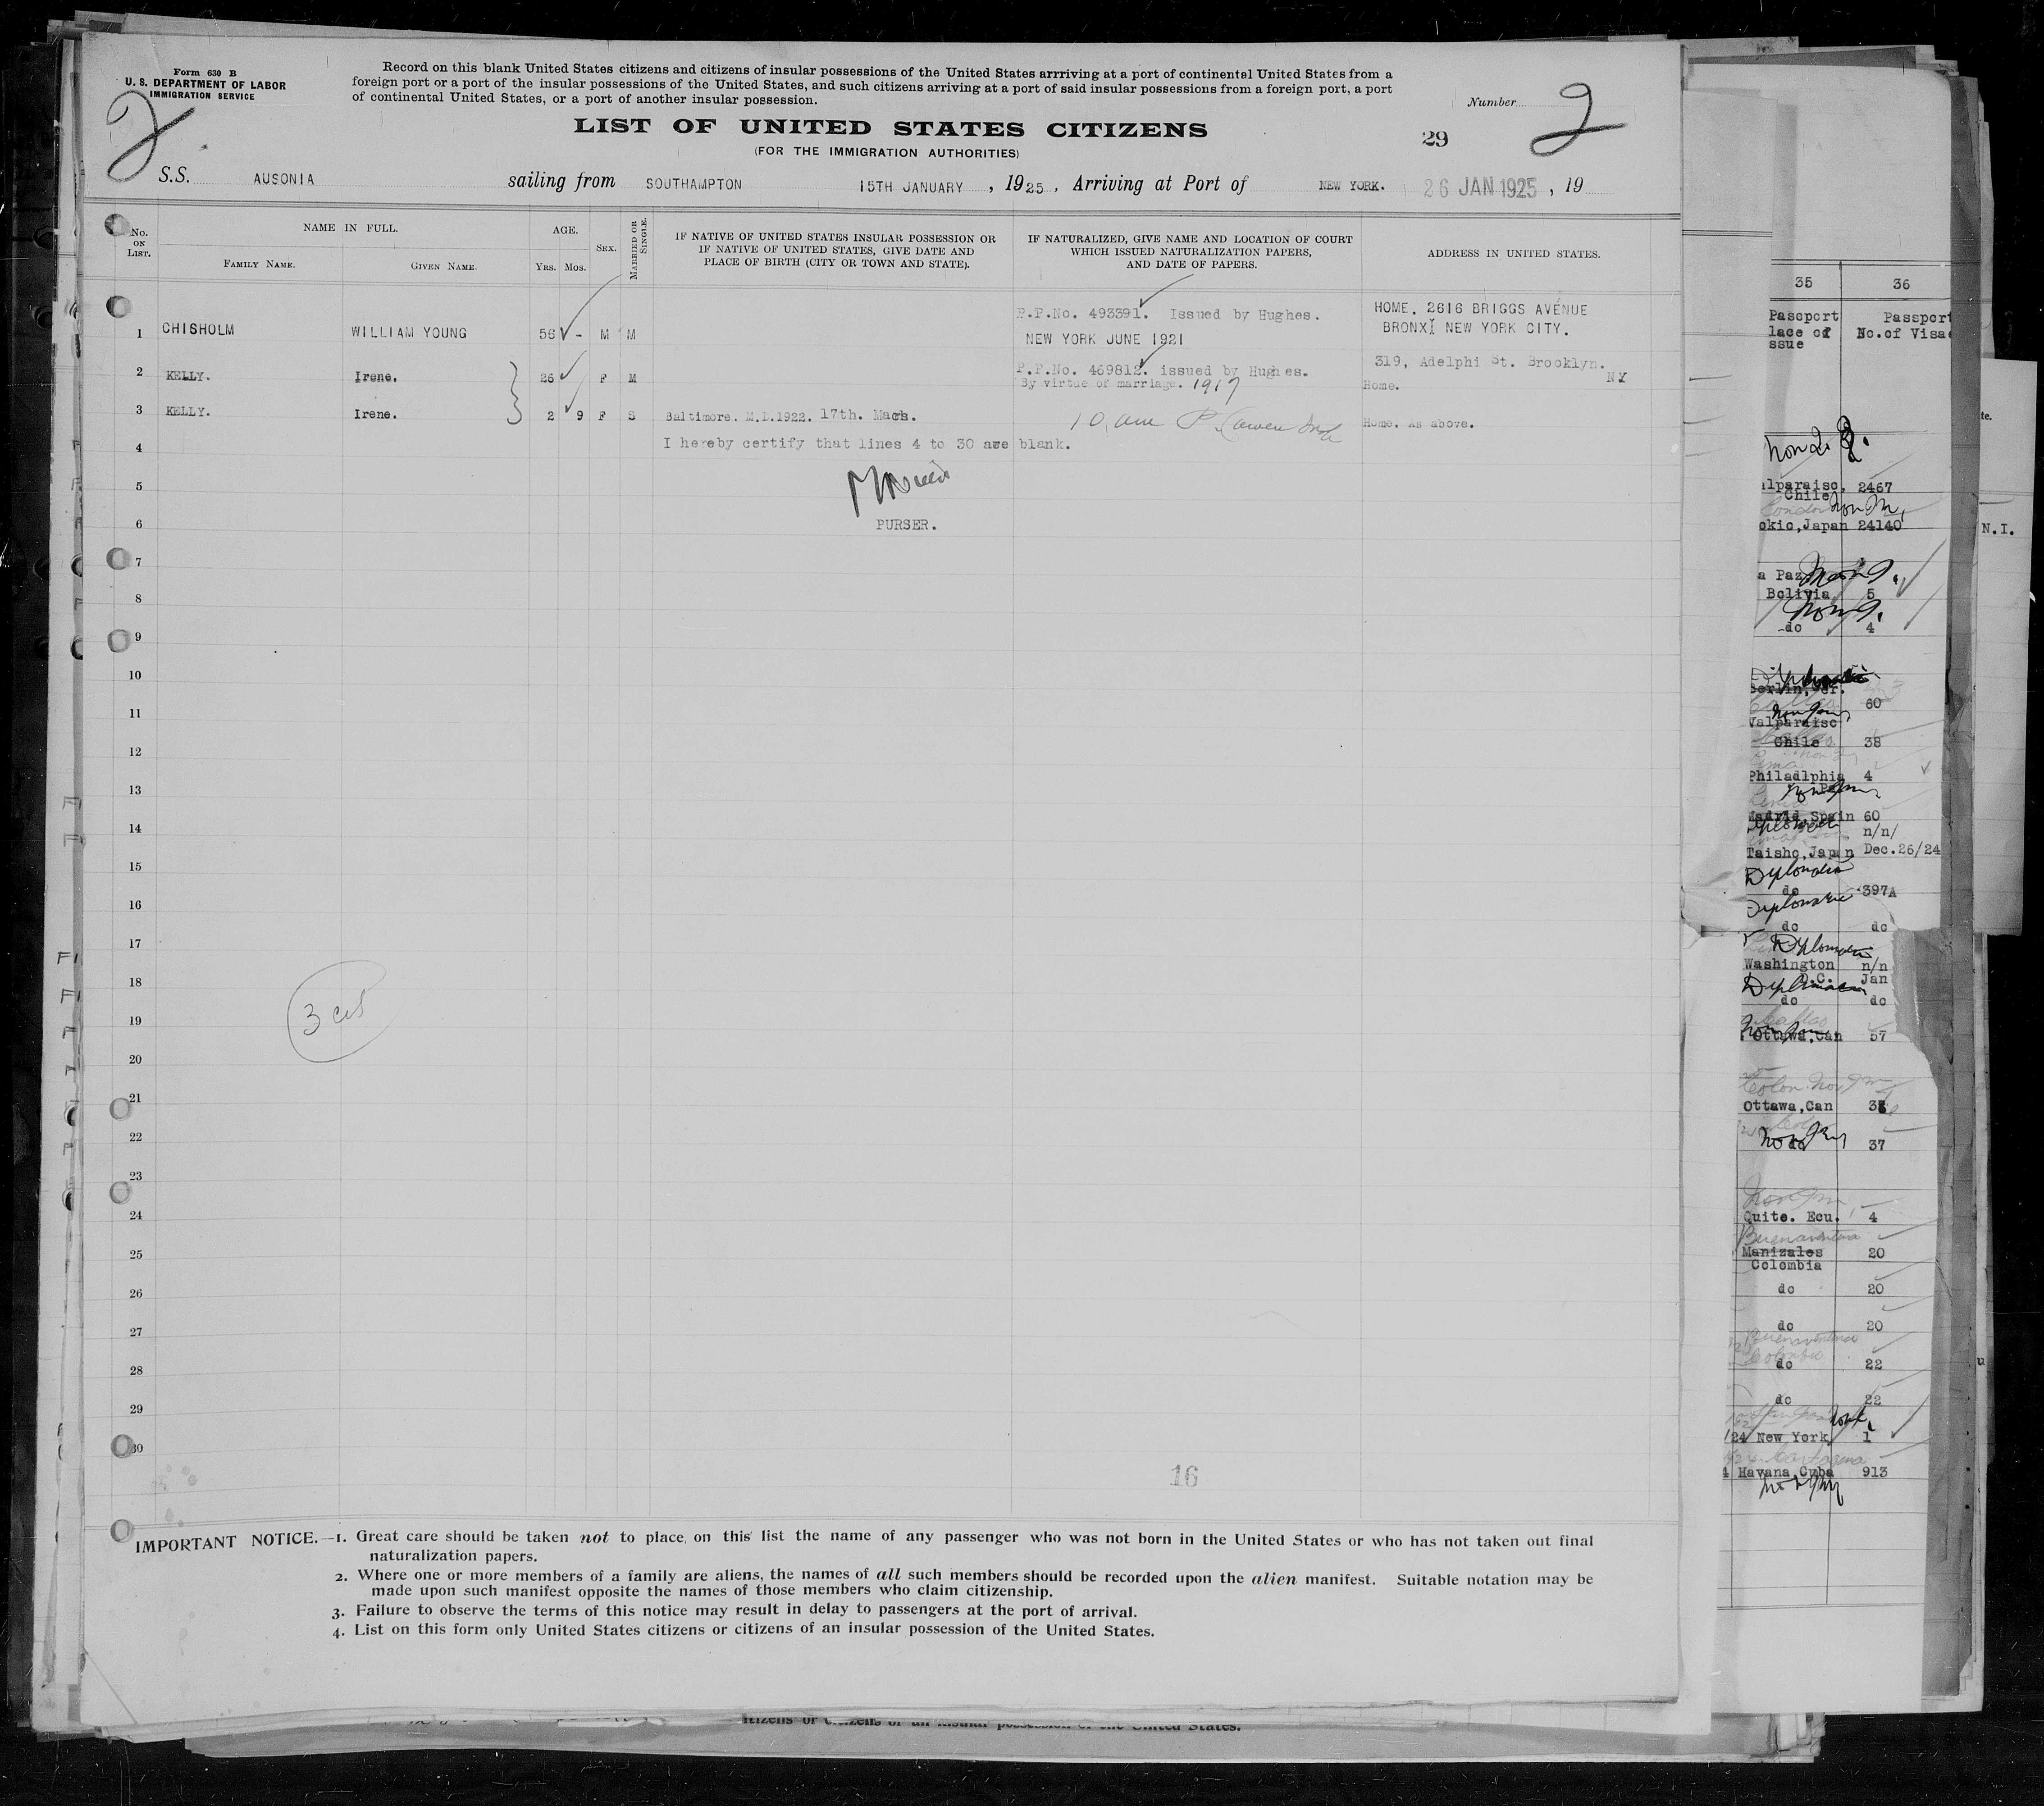 Form 630 B
U. S. DEPARTMENT OF LABOR
IMMIGRATION SERVICE
2
Record on this blank United States citizens and citizens of insular possessions of the United States arrriving at a port of continental United States from a
foreign port or a port of the insular possessions of the United States, and such citizens arriving at a port of said insular possessions from a foreign port, a port
of continental United States, or a port of another insular possession.
Number 2
LIST OF UNITED STATES CITIZENS
29
(FOR THE IMMIGRATION AUTHORITIES)
S.S. AUSONIA sailing from SOUTHAMPTON 15TH JANUARY , 1925, Arriving at Port of NEW YORK. 26 JAN 1925 , 19
No. ON LIST.
NAME IN FULL.
FAMILY NAME. GIVEN NAME.
AGE.
YRS. MOS.
SEX.
MARRIED OR SINGLE.
IF NATIVE OF UNITED STATES INSULAR POSSESSION OR
IF NATIVE OF UNITED STATES, GIVE DATE AND
PLACE OF BIRTH (CITY OR TOWN AND STATE).
IF NATURALIZED, GIVE NAME AND LOCATION OF COURT
WHICH ISSUED NATURALIZATION PAPERS,
AND DATE OF PAPERS.
ADDRESS IN UNITED STATES.
P.P.No. 493391. Issued by Hughes. HOME. 2616 BRIGGS AVENUE
1 CHISHOLM WILLIAM YOUNG 56 - M M NEW YORK JUNE 1921 BRONX NEW YORK CITY.
2 KELLY. Irene. 26 F M P.P.No. 469812. issued by Hughes. 319, Adelphi St. Brooklyn. NY
By virtue of marriage. 1917 Home.
3 KELLY. Irene. 2 9 F S Baltimore. M.D.1922. 17th. March. 10 am Home. as above.
4 I hereby certify that lines 4 to 30 are blank.
5
6 PURSER.
7
8
9
10
11
12
13
14
15
16
17
18
19
3 cit
20
21
22
23
24
25
26
27
28
29
30
16
IMPORTANT NOTICE.—1. Great care should be taken not to place on this list the name of any passenger who was not born in the United States or who has not taken out final
naturalization papers.
2. Where one or more members of a family are aliens, the names of all such members should be recorded upon the alien manifest. Suitable notation may be
made upon such manifest opposite the names of those members who claim citizenship.
3. Failure to observe the terms of this notice may result in delay to passengers at the port of arrival.
4. List on this form only United States citizens or citizens of an insular possession of the United States.
35 36
Passport Passport
lace of No.of Visa
ssue
alparaiso, 2467
Chile
okio,Japan 24140
a Paz
Bolivia 5
do 4
Berlin, Ger. 60
Valparaiso
Chile 38
Philadlphia 4
Madrid,Spain 60
n/n/
Taisho,Japan Dec.26/24
Diplomatic
do 397A
Diplomatic
do do
Diplomatic
Washington n/n
D.C. Jan
Diplomatic
do do
Ottawa,Can 57
Colon
Ottawa,Can 38
do 37
Quito. Ecu. 4
Buenaventura
Manizales 20
Colombia
do 20
do 20
Buenaventura
Colombia
do 22
do 22
/24 New York 1
Cartagena
4 Havana,Cuba 913
te.
N.I.
itizens or citizens of an insular possession of the United States.